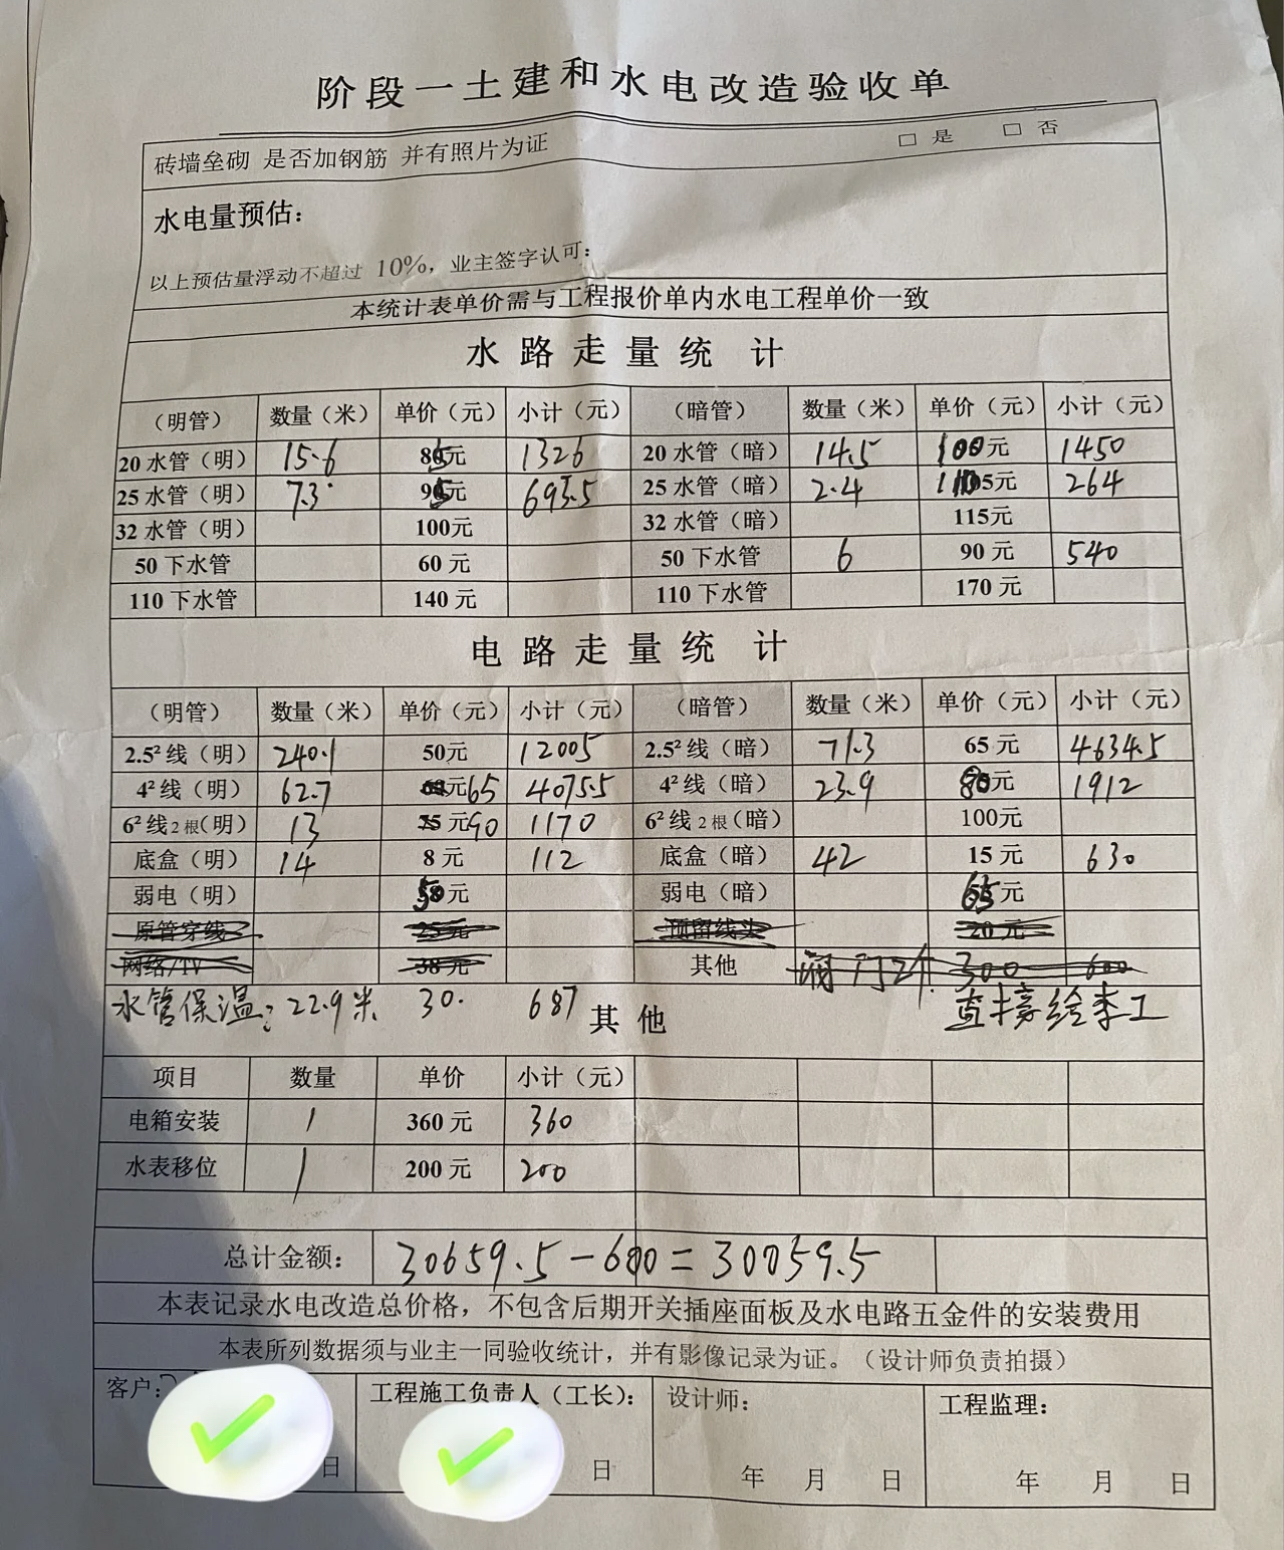 阶段一土建和水电改造验收单
砖墙垒砌 是否加钢筋 并有照片为证 □ 是 □ 否
水电量预估：
以上预估量浮动不超过 10%，业主签字认可：
本统计表单价需与工程报价单内水电工程单价一致
水路走量统 计
（明管） 数量（米） 单价（元） 小计（元） （暗管） 数量（米） 单价（元） 小计（元）
20 水管（明） 15.6 85元 1326 20 水管（暗） 14.5 100元 1450
25 水管（明） 7.3 95元 693.5 25 水管（暗） 2.4 元 264
32 水管（明） 100元 32 水管（暗） 115元
50 下水管 60 元 50 下水管 6 90 元 540
110 下水管 140 元 110 下水管 170 元
电路走量统 计
（明管） 数量（米） 单价（元） 小计（元） （暗管） 数量（米） 单价（元） 小计（元）
2.5²线（明） 240.1 50元 12005 2.5²线（暗） 71.3 65 元 4634.5
4²线（明） 62.7 元65 4075.5 4²线（暗） 23.9 80元 1912
6²线2根(明) 13 75 元90 1170 6²线2根（暗） 100元
底盒（明） 14 8 元 112 底盒（暗） 42 15 元 630
弱电（明） 50元 弱电（暗） 65元
原管穿线 25元 预留线头 20 元
网络/TV 38元 其他 阀门2个 300 600
水管保温：22.9米 30. 687 其 他 直接给李工
项目 数量 单价 小计（元）
电箱安装 1 360 元 360
水表移位 1 200 元 200
总计金额： 30659.5-600=30059.5
本表记录水电改造总价格，不包含后期开关插座面板及水电路五金件的安装费用
本表所列数据须与业主一同验收统计，并有影像记录为证。（设计师负责拍摄）
客户： 工程施工负责人（工长）： 设计师： 工程监理：
日 日 年 月 日 年 月 日